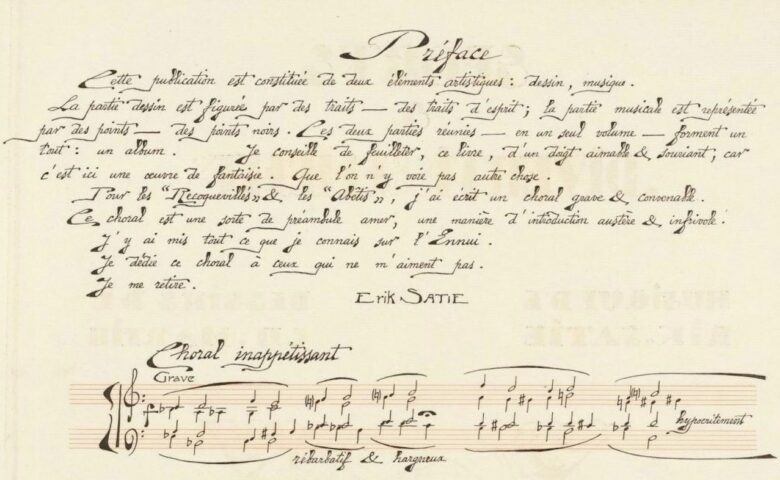 Préface
Cette publication est constituée de deux éléments artistiques : dessin, musique.
La partie dessin est figurée par des traits — des traits d'esprit; la partie musicale est représentée
par des points — des points noirs. Ces deux parties réunies — en un seul volume — forment un
tout : un album. Je conseille de feuilleter, ce livre, d'un doigt aimable & souriant, car
c'est ici une œuvre de fantaisie. Que l'on n'y voie pas autre chose.
Pour les "Recoquevillés" & les "Abêtis", j'ai écrit un choral grave & convenable.
Ce choral est une sorte de préambule amer, une manière d'introduction austère & infrivole.
J'y ai mis tout ce que je connais sur l'Ennui.
Je dédie ce choral à ceux qui ne m'aiment pas.
Je me retire.
Erik SATIE
Choral inappétissant
Grave
f
hypocritement
rébarbatif & hargneux